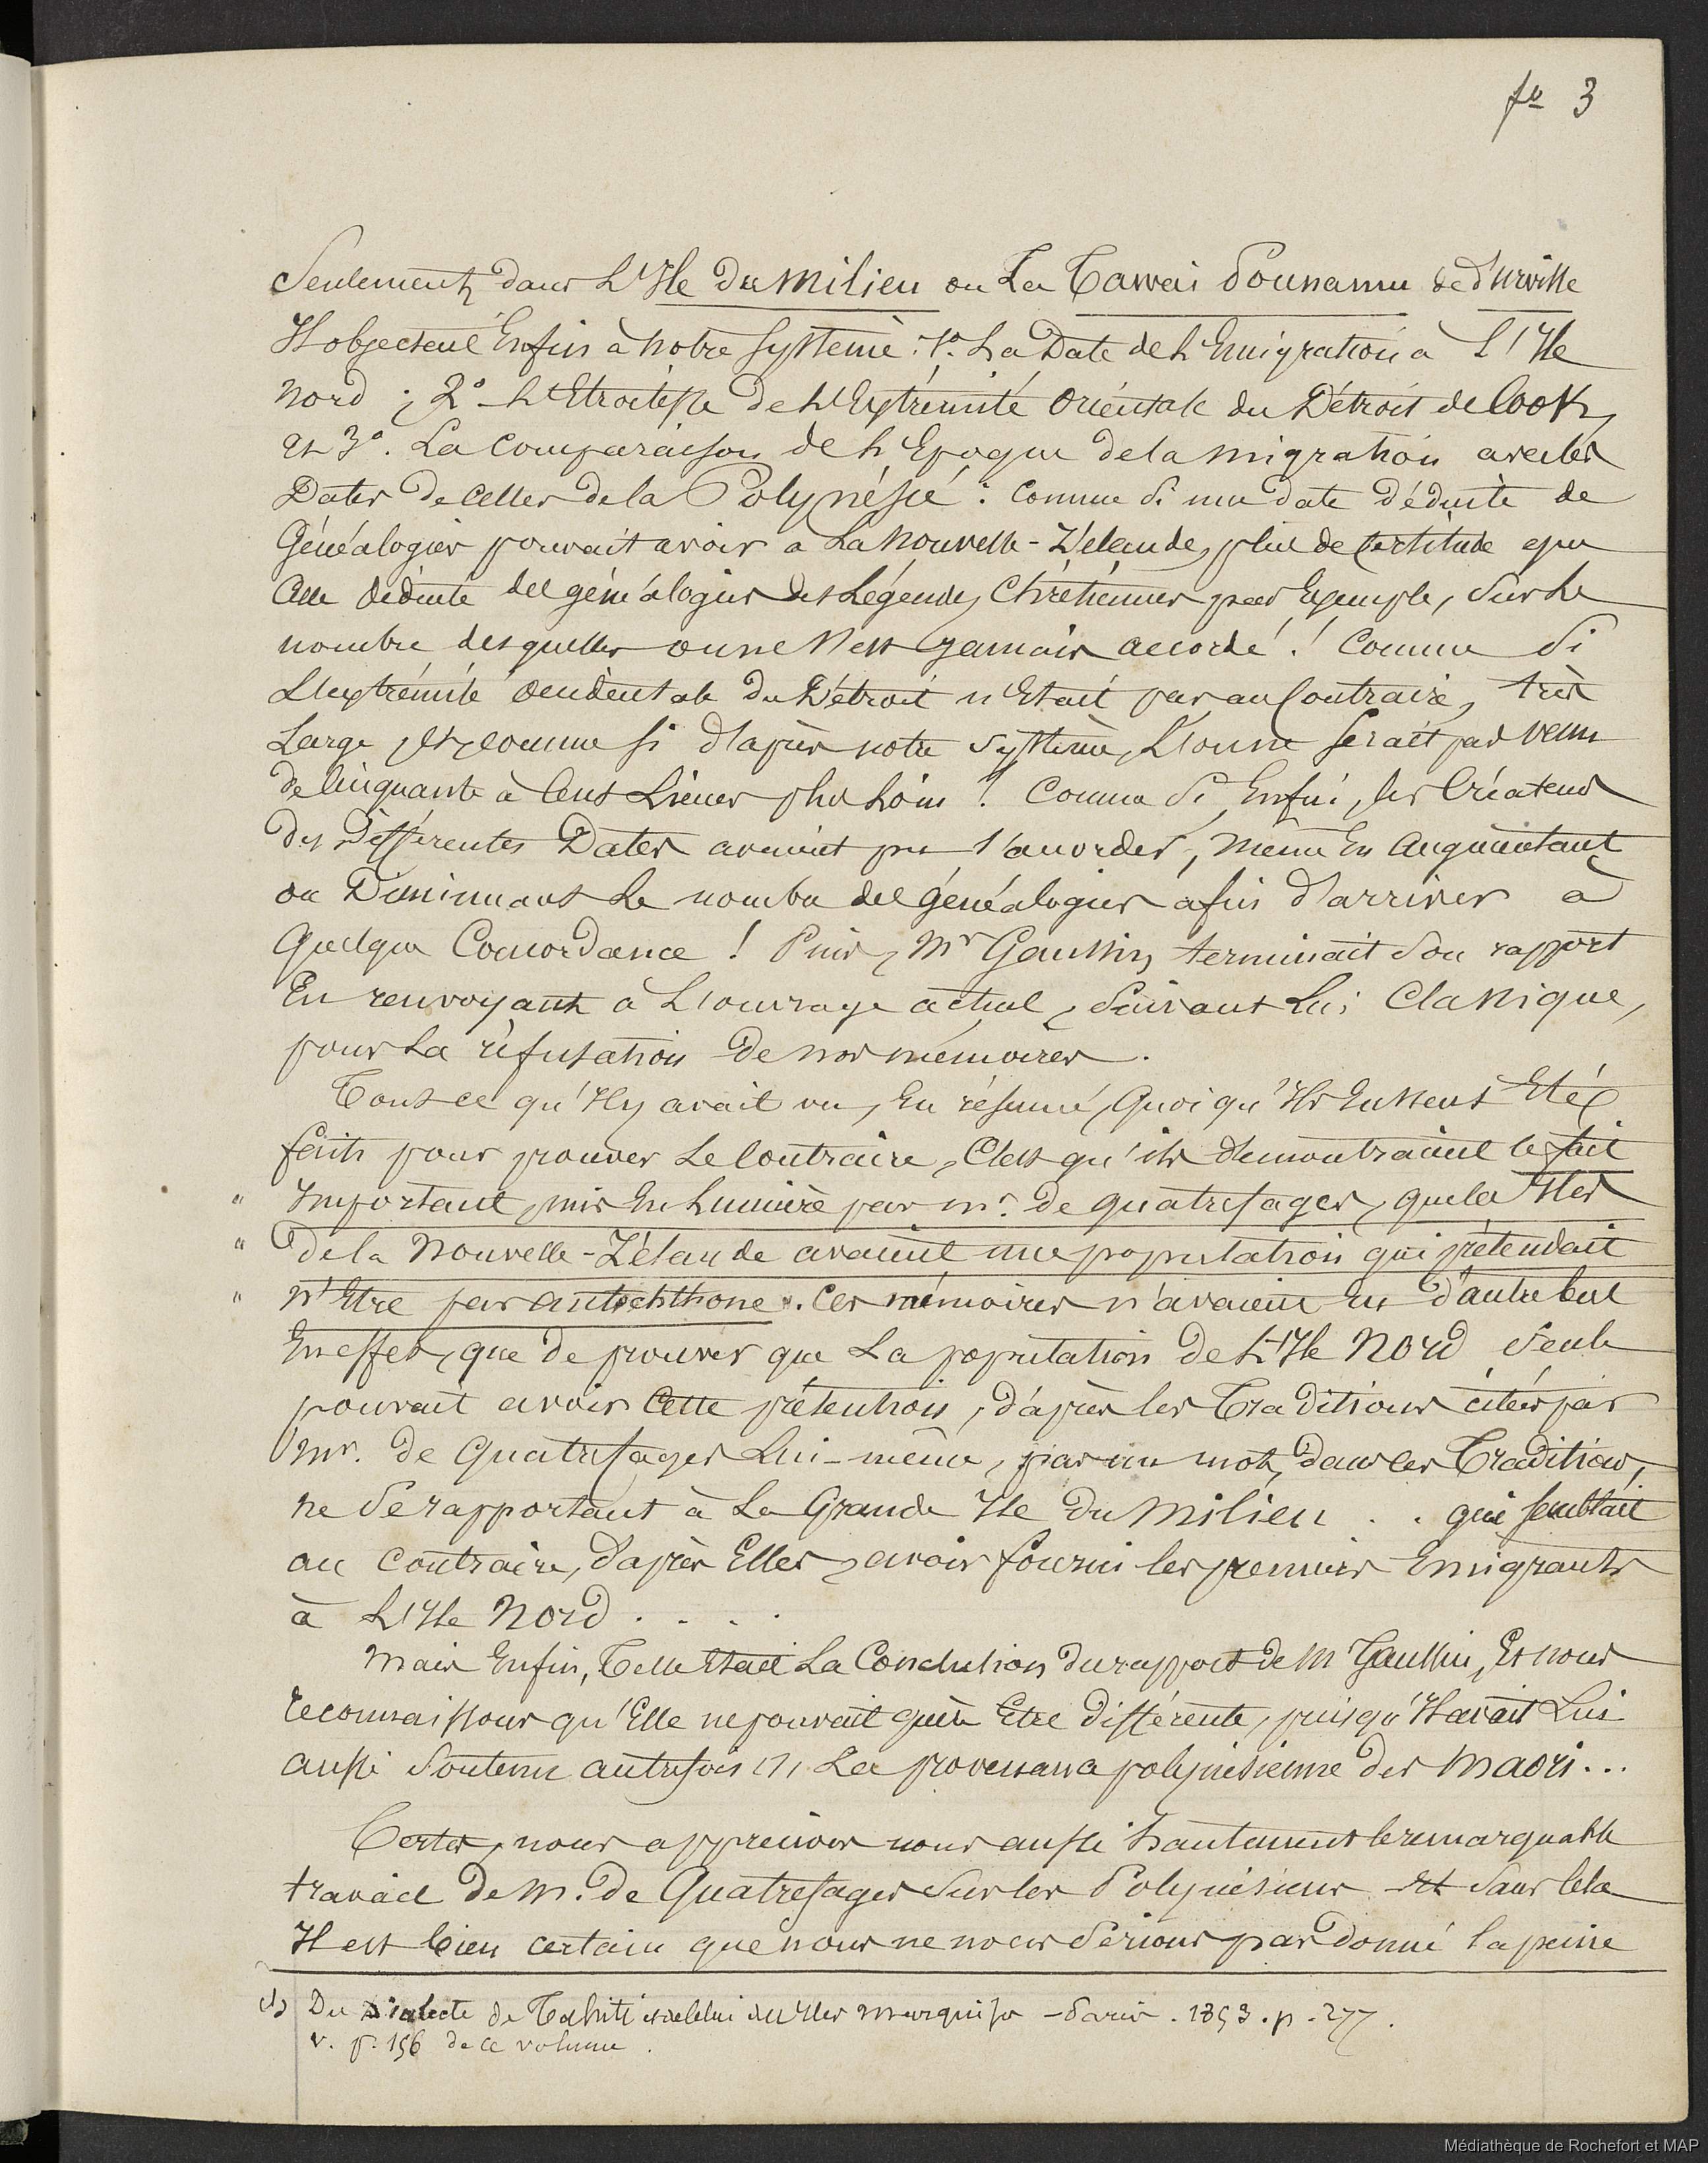 fo 3
Seulement, dans L'Ile du Milieu ou La Tawaï Pounamu de d'urville
Il objectait Enfin à notre Système : 1o. La Date de L'Emigration à L'Ile
Nord ; 2o - L'Etroitesse de L'Extrémité Orientale du Détroit de Cook,
et 3o. La Comparaison de L'Epoque de la migration avec les
Dates de Celles de la Polynésie : Comme Si une date déduite de
Généalogies pouvait avoir à La Nouvelle-Zélande, plus de Certitude que
Celle déduite des généalogies des Légendes Chrétiennes par Exemple, Sur Le
nombre desquelles on ne s'est jamais accordé ! Comme Si
L'extrémité Occidentale du Détroit n'Etait pas au Contraire, très
Large, Et, comme si d'après notre Système, L'on ne Serait pas venu
de Cinquante à Cent Lieues plus Loin ! Comme Si, Enfin, les Créateurs
des Différentes Dates avaient pu s'accorder, même En Augmentant
ou Diminuant Le nombre des généalogies afin d'arriver à
Quelque Concordance ! Puis, Mr Gaussin, terminait Son rapport
En renvoyant à L'ouvrage actuel, Suivant Lui Classique,
pour La réfutation de nos mémoires.
Tout ce qu'Il y avait vu, En résumé, Quoiqu'Ils Eussent Eté
faits pour prouver Le Contraire, C'est qu'ils démontraient le fait
" Important, mis En Lumière par mr. de quatrefages, que les Iles
" de la Nouvelle-Zélande avaient une population qui prétendait
" n'Etre pas autochthone. Ces mémoires n'avaient Eu d'autre but
En effet, que de prouver que La population de L'Ile Nord Seule
pouvait avoir Cette prétention, d'après les Traditions citées par
mr. de Quatrefages Lui-même, pas un mot, dans les Traditions,
ne Se rapportant à La Grande Ile du Milieu . . qui semblait
au Contraire, d'après Elles, avoir fourni les premiers Emigrants
à L'Ile Nord . . . .
Mais Enfin, Telle Etait La Conclusion du rapport de M Gaussin, Et nous
reconnaissons qu'Elle ne pouvait guère Etre différente, puisqu'Il avait Lui
aussi Soutenu autrefois (1) La provenance polynésienne des Maori...
Certes, nous apprécions nous aussi hautement le remarquable
travail de M. de Quatrefages Sur les Polynésiens et Sans Cela
Il est bien certain que nous ne nous Serions pas donné la peine
(1) Du Dialecte de Tahiti et de Celui des Iles Marquises - Paris. 1853. p. 277.
v. p. 156 de ce volume.
Médiathèque de Rochefort et MAP